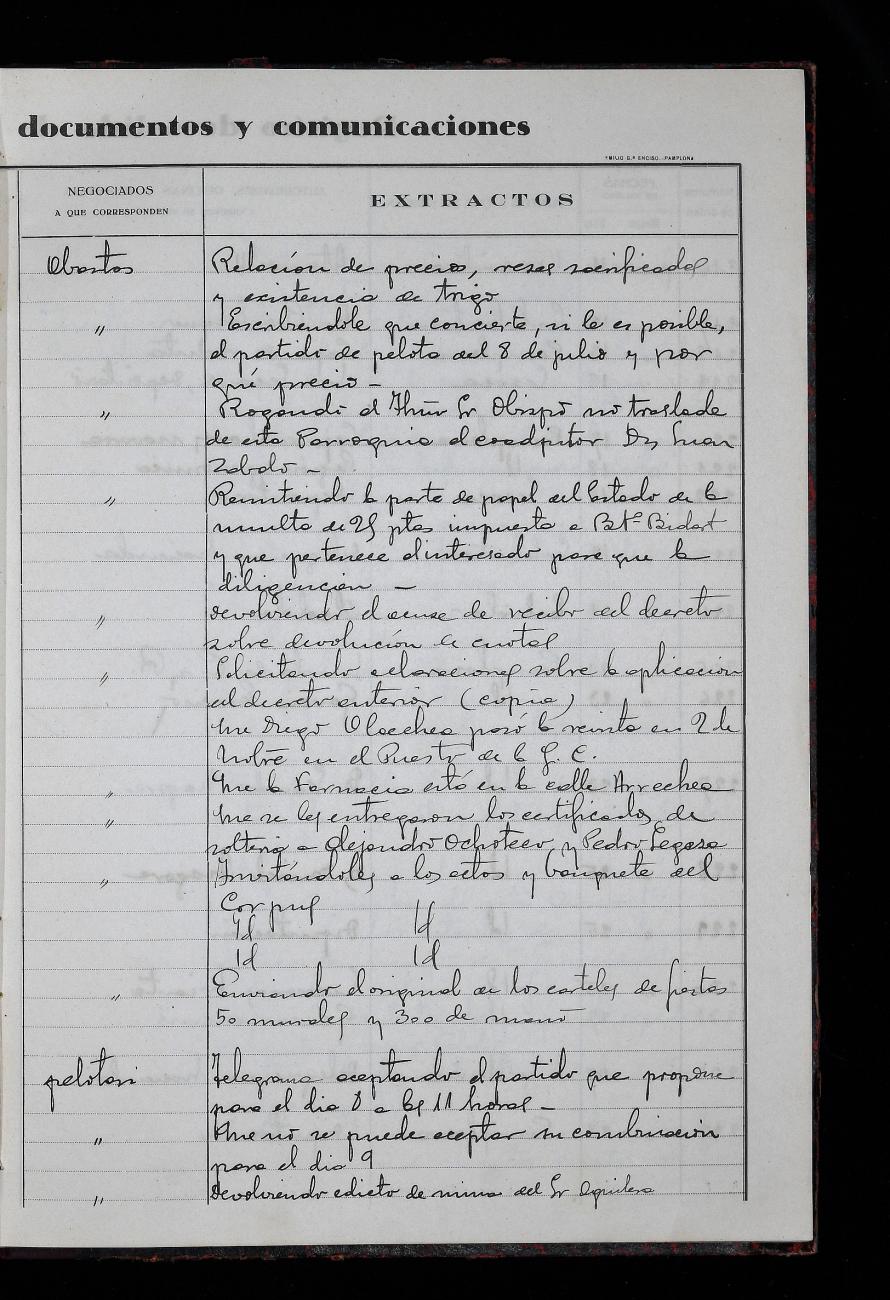 documentos y comunicaciones
EMILIO G.ª ENCISO.-PAMPLONA
NEGOCIADOS
A QUE CORRESPONDEN
EXTRACTOS
Abastos Relación de precios, reses sacrificadas
y existencia de trigo
" Escribiendole que concierte, si le es posible,
el partido de pelota del 8 de julio y por
qué precio –
" Rogando al Iltmo Sr Obispo no traslade
de esta Parroquia al coadjutor Dn Juan
Zabalo –
" Remitiendo la parte de papel del Estado de la
multa de 25 ptas impuesta a Bte Bidart
y que pertenece al interesado para que la
diligencien –
" Devolviendo el acuse de recibo del decreto
sobre devolución de cuotas
" Solicitando aclaraciones sobre la aplicación
del decreto anterior (copia)
Que Diego Olaechea pasó la revista en 2 de
Nobre en el Puesto de la G. C.
" Que la Farmacia está en la calle Arrechea
" Que se les entregaron los certificados de
solteria a Alejandro Ochoteco y Pedro Legasa
" Invitándoles a los actos y banquete del
Corpus
Id Id
Id Id
" Enviando el original de los carteles de fiestas
50 murales y 300 de mano
pelotari Telegrama aceptando el partido que propone
para el dia 8 a las 11 horas –
" Que no se puede aceptar su combinación
para el dia 9
" Devolviendo edicto de mina del Sr Aguilera